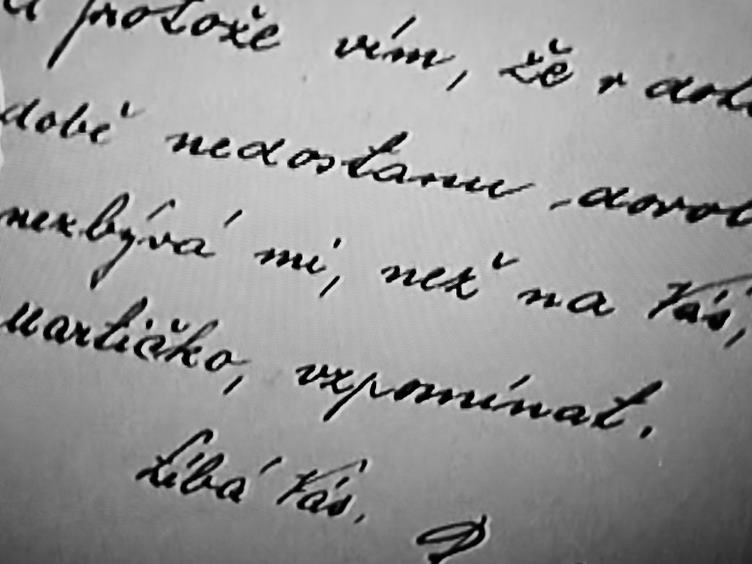 a protože vím, že v
době nedostanu
nezbývá mi, než na Vás,
Martičko, vzpomínat.
Líbá Vás,
P